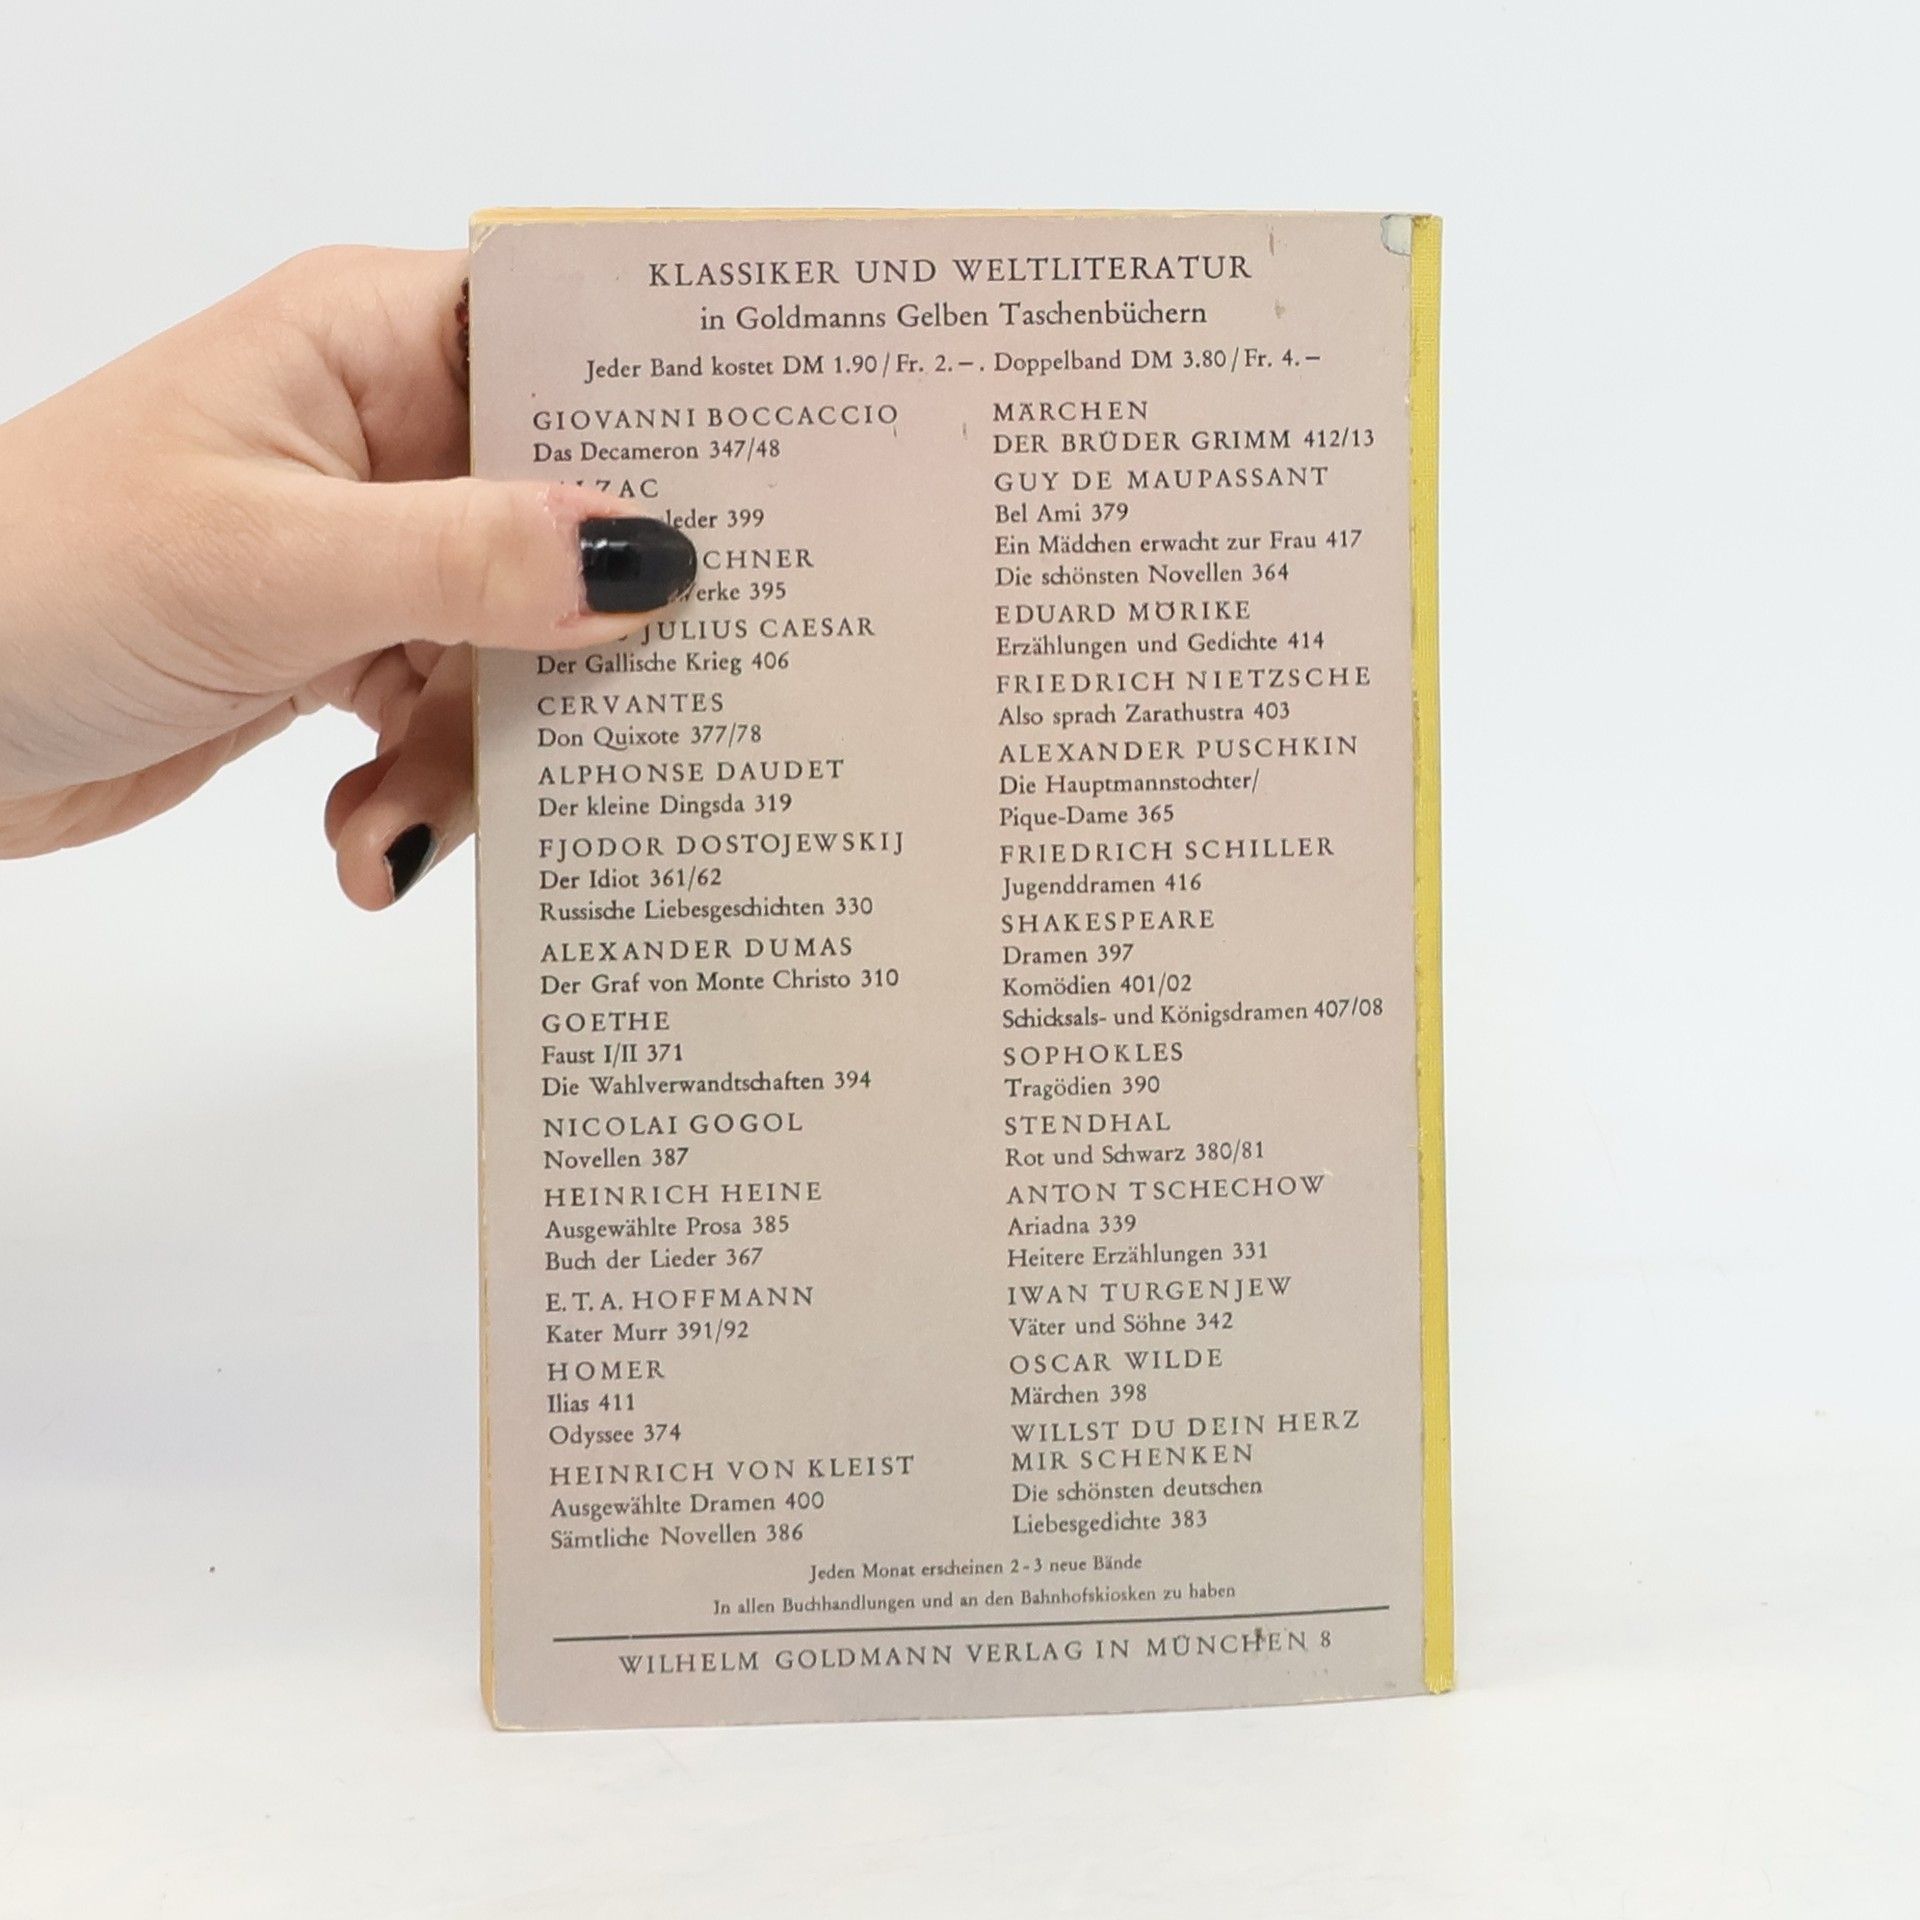 KLASSIKER UND WELTLITERATUR
in Goldmanns Gelben Taschenbüchern
Jeder Band kostet DM 1.90/Fr. 2.–. Doppelband DM 3.80/Fr. 4.–
GIOVANNI BOCCACCIO
Das Decameron 347/48
399
395
JULIUS CAESAR
Der Gallische Krieg 406
CERVANTES
Don Quixote 377/78
ALPHONSE DAUDET
Der kleine Dingsda 319
FJODOR DOSTOJEWSKIJ
Der Idiot 361/62
Russische Liebesgeschichten 330
ALEXANDER DUMAS
Der Graf von Monte Christo 310
GOETHE
Faust I/II 371
Die Wahlverwandtschaften 394
NICOLAI GOGOL
Novellen 387
HEINRICH HEINE
Ausgewählte Prosa 385
Buch der Lieder 367
E. T. A. HOFFMANN
Kater Murr 391/92
HOMER
Ilias 411
Odyssee 374
HEINRICH VON KLEIST
Ausgewählte Dramen 400
Sämtliche Novellen 386
MÄRCHEN
DER BRÜDER GRIMM 412/13
GUY DE MAUPASSANT
Bel Ami 379
Ein Mädchen erwacht zur Frau 417
Die schönsten Novellen 364
EDUARD MÖRIKE
Erzählungen und Gedichte 414
FRIEDRICH NIETZSCHE
Also sprach Zarathustra 403
ALEXANDER PUSCHKIN
Die Hauptmannstochter/
Pique-Dame 365
FRIEDRICH SCHILLER
Jugenddramen 416
SHAKESPEARE
Dramen 397
Komödien 401/02
Schicksals- und Königsdramen 407/08
SOPHOKLES
Tragödien 390
STENDHAL
Rot und Schwarz 380/81
ANTON TSCHECHOW
Ariadna 339
Heitere Erzählungen 331
IWAN TURGENJEW
Väter und Söhne 342
OSCAR WILDE
Märchen 398
WILLST DU DEIN HERZ
MIR SCHENKEN
Die schönsten deutschen
Liebesgedichte 383
Jeden Monat erscheinen 2-3 neue Bände
In allen Buchhandlungen und an den Bahnhofskiosken zu haben
WILHELM GOLDMANN VERLAG IN MÜNCHEN 8